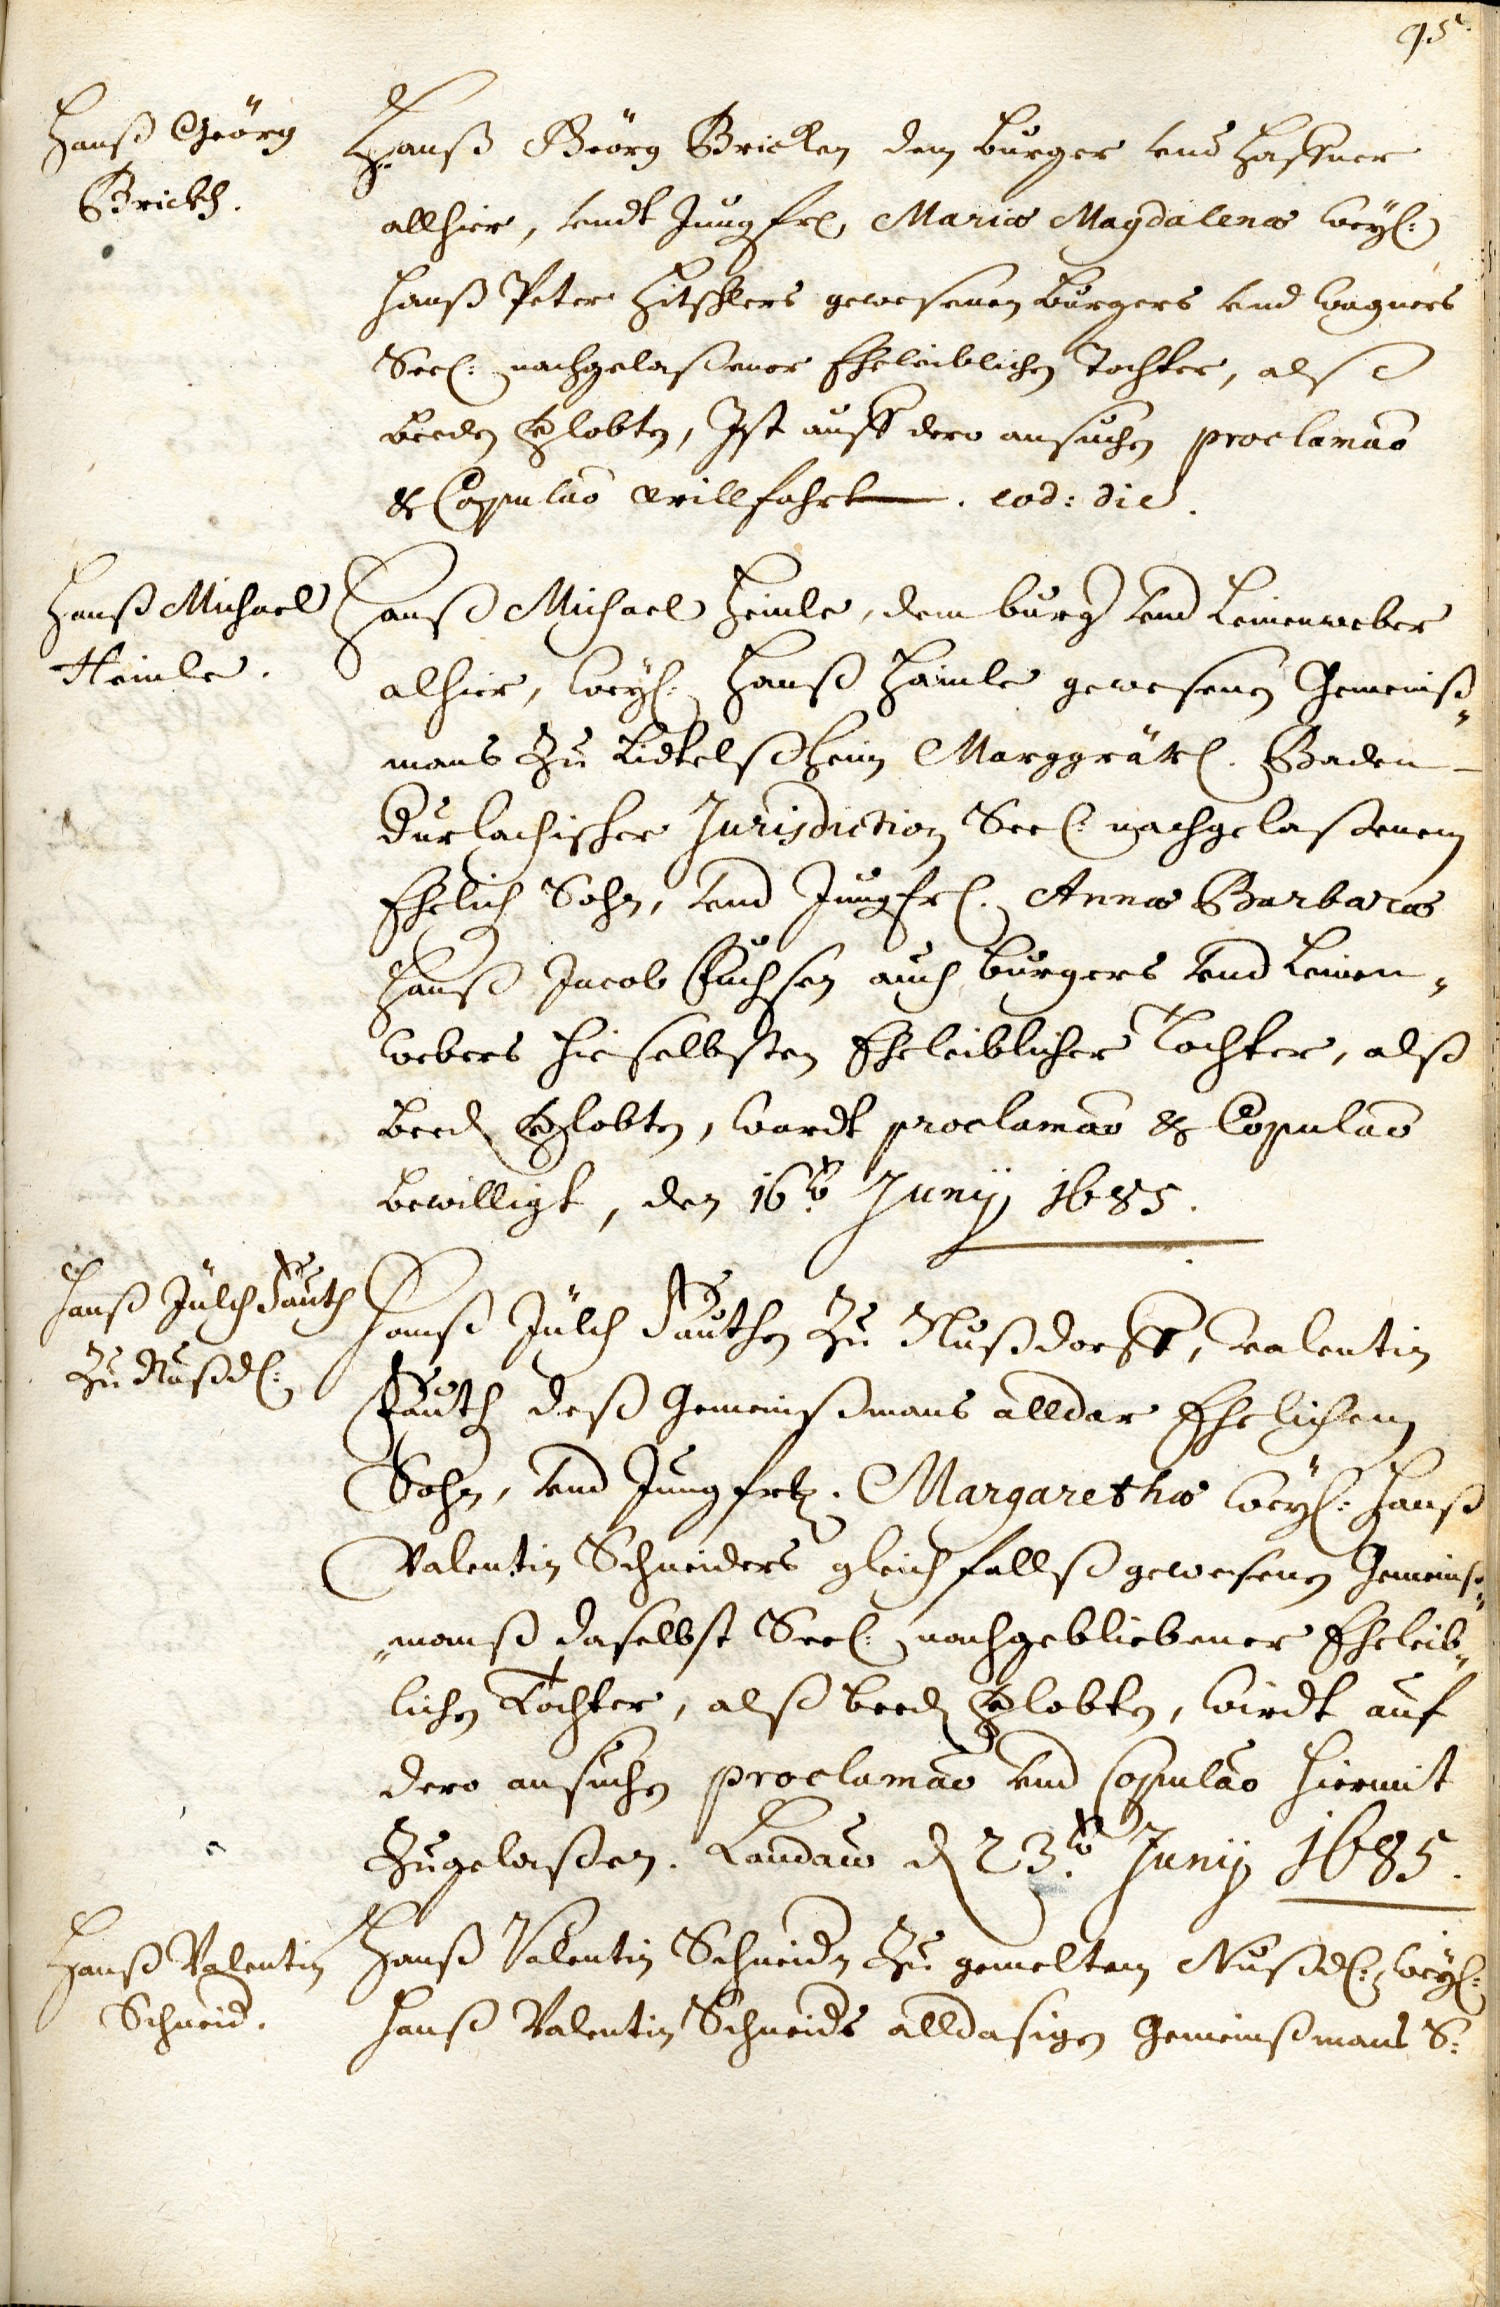 95.
Hanß Geörg
Brickh.
Hanß Geörg Bricken dem burger vnd Haffner
allhier, vndt Jungfr. Mariæ Magdalenæ weyl:
Hanß Peter Hitschlers gewesenen burgers vnd wagners
Seel: nachgelaßener Eheleiblichen Tochter, alß
beeden verlobten, Ist auff dero ansuchen proclamao
& Copulao willfahrt. eod: die.
Hanß Michael
Heimle.
Hanß Michael Heimle, dem burg. vnd Leinenweber
alhier, weyl. Hanß Haimle gewesenen Gemeinß„
mans zu Lidtelßheim Marggräfl. Baden-
Durlachischer Jurisdiction Seel. nachgelaßenem
Ehelich Sohn, vnd Jungfr. Annæ Barbaræ
Hanß Jacob Fuchsen auch burgers vnd Leinen„
webers hieselbsten Eheleiblicher Tochter, alß
beed. verlobten, wardt proclamao & Copulao
bewilligt, den 16ten Junij 1685.
Hanß Jülch Fauth
zu Nußd.:
Hanß Jülch Fauthen zu Nußdorff, Valentin
Fauth deß Gemeinßmans alldar Ehelichem
Sohn, vnd Jungfr. Margarethæ weyl: Hanß
Valentin Schneiders gleichfallß gewesenen Gemeinß„
„manß daselbst Seel: nachgebliebener Eheleib„
lichen Tochter, alß beed. verlobten, wirdt auf
dero ansuchen proclamao vnd Copulao hiermit
zugelaßen. Landaw d. 23ten Junij 1685.
Hanß Valentin
Schneid.
Hanß Valentin Schneidn zu gemeltem Nußd:, weyl:
Hanß Valentin Schneids alldasigen Gemeinßmans S: